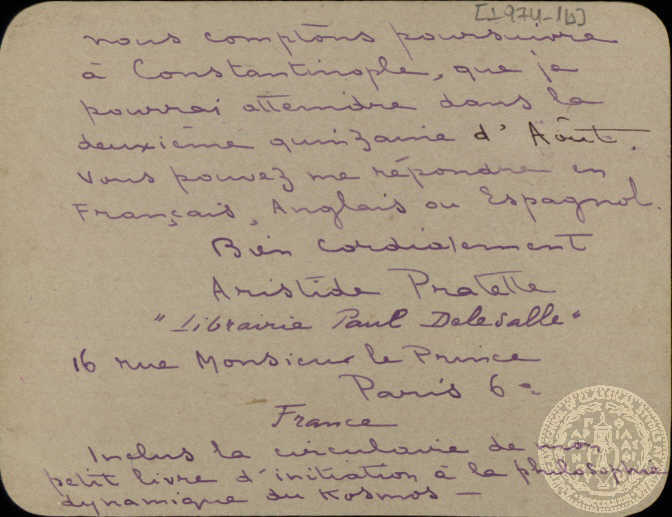 [1974-1b]
nous comptons poursuivre
à Constantinople, que je
pourrai atteindre dans la
deuxième quinzaine d'Août.
Vous pouvez me répondre en
Français, Anglais ou Espagnol.
Bien cordialement
Aristide Pratelle
"Librairie Paul Delesalle"
16 rue Monsieur le Prince
Paris 6e
France
Inclus la circulaire de mon
petit livre d'initiation à la philosophie
dynamique du Kosmos —